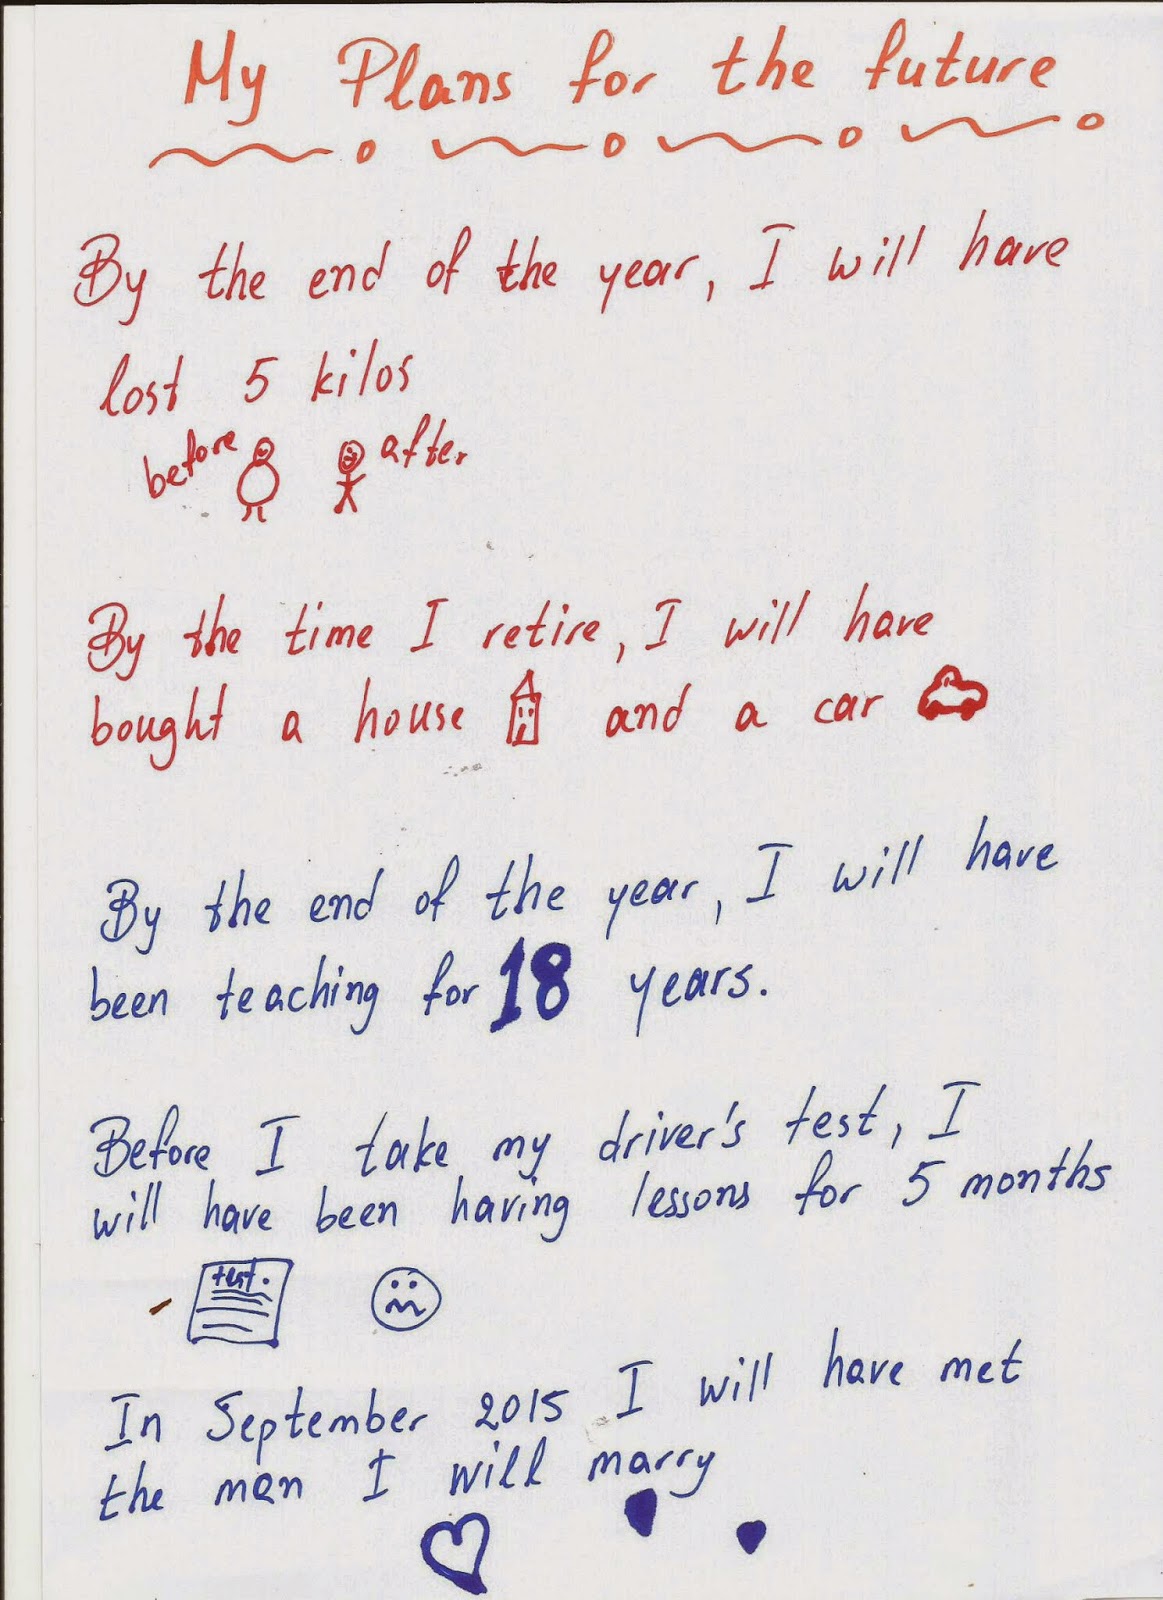 My Plans for the future
By the end of the year, I will have
lost 5 kilos
before after.
By the time I retire, I will have
bought a house and a car
By the end of the year, I will have
been teaching for 18 years.
Before I take my driver's test, I
will have been having lessons for 5 months
test.
In September 2015 I will have met
the man I will marry